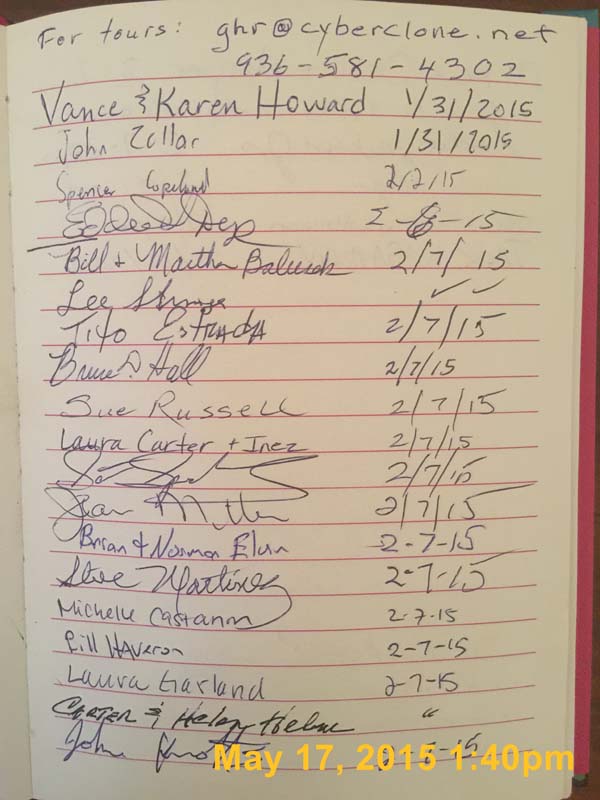 For tours: ghr@cyberclone.net
936-581-4302
Vance & Karen Howard 1/31/2015
John Zollar 1/31/2015
Spencer Copeland 2/2/15
-15
Bill & Martha 2/7/15
Lee ✓ ✓
Tito Estrada 2/7/15
Bruce D. Hall 2/7/15
Sue Russell 2/7/15
Laura Carter + Inez 2/7/15
2/7/15
Jean 2/7/15
Brian & Norman 2-7-15
Steve Martinez 2-7-15
Michelle 2-7-15
Bill Haveron 2-7-15
Laura Garland 2-7-15
CARTER & "
John -15
May 17, 2015 1:40pm